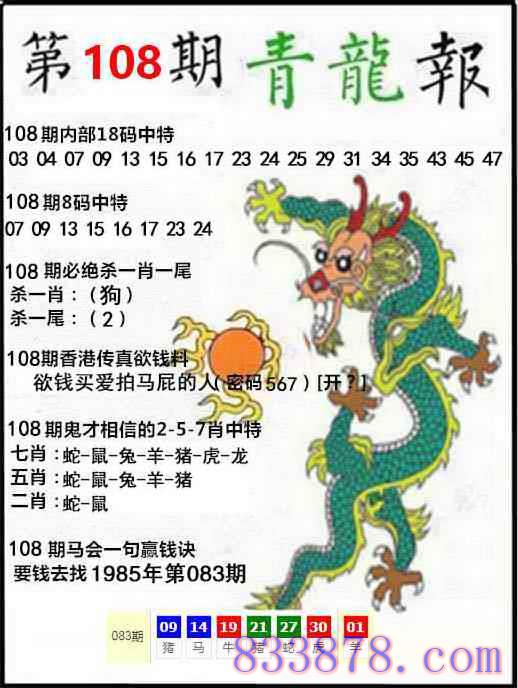 第108期青龍報
108期内部18码中特
03 04 07 09 13 15 16 17 23 24 25 29 31 34 35 43 45 47
108期8码中特
07 09 13 15 16 17 23 24
108期必绝杀一肖一尾
杀一肖：（狗）
杀一尾：（2）
108期香港传真欲钱料
欲钱买爱拍马屁的人(密码567)[开?]
108期鬼才相信的2-5-7肖中特
七肖：蛇-鼠-兔-羊-猪-虎-龙
五肖：蛇-鼠-兔-羊-猪
二肖：蛇-鼠
108期马会一句赢钱诀
要钱去找1985年第083期
083期 09 14 19 21 27 30 01
猪 马 牛 猪 蛇 虎 羊
833878.com